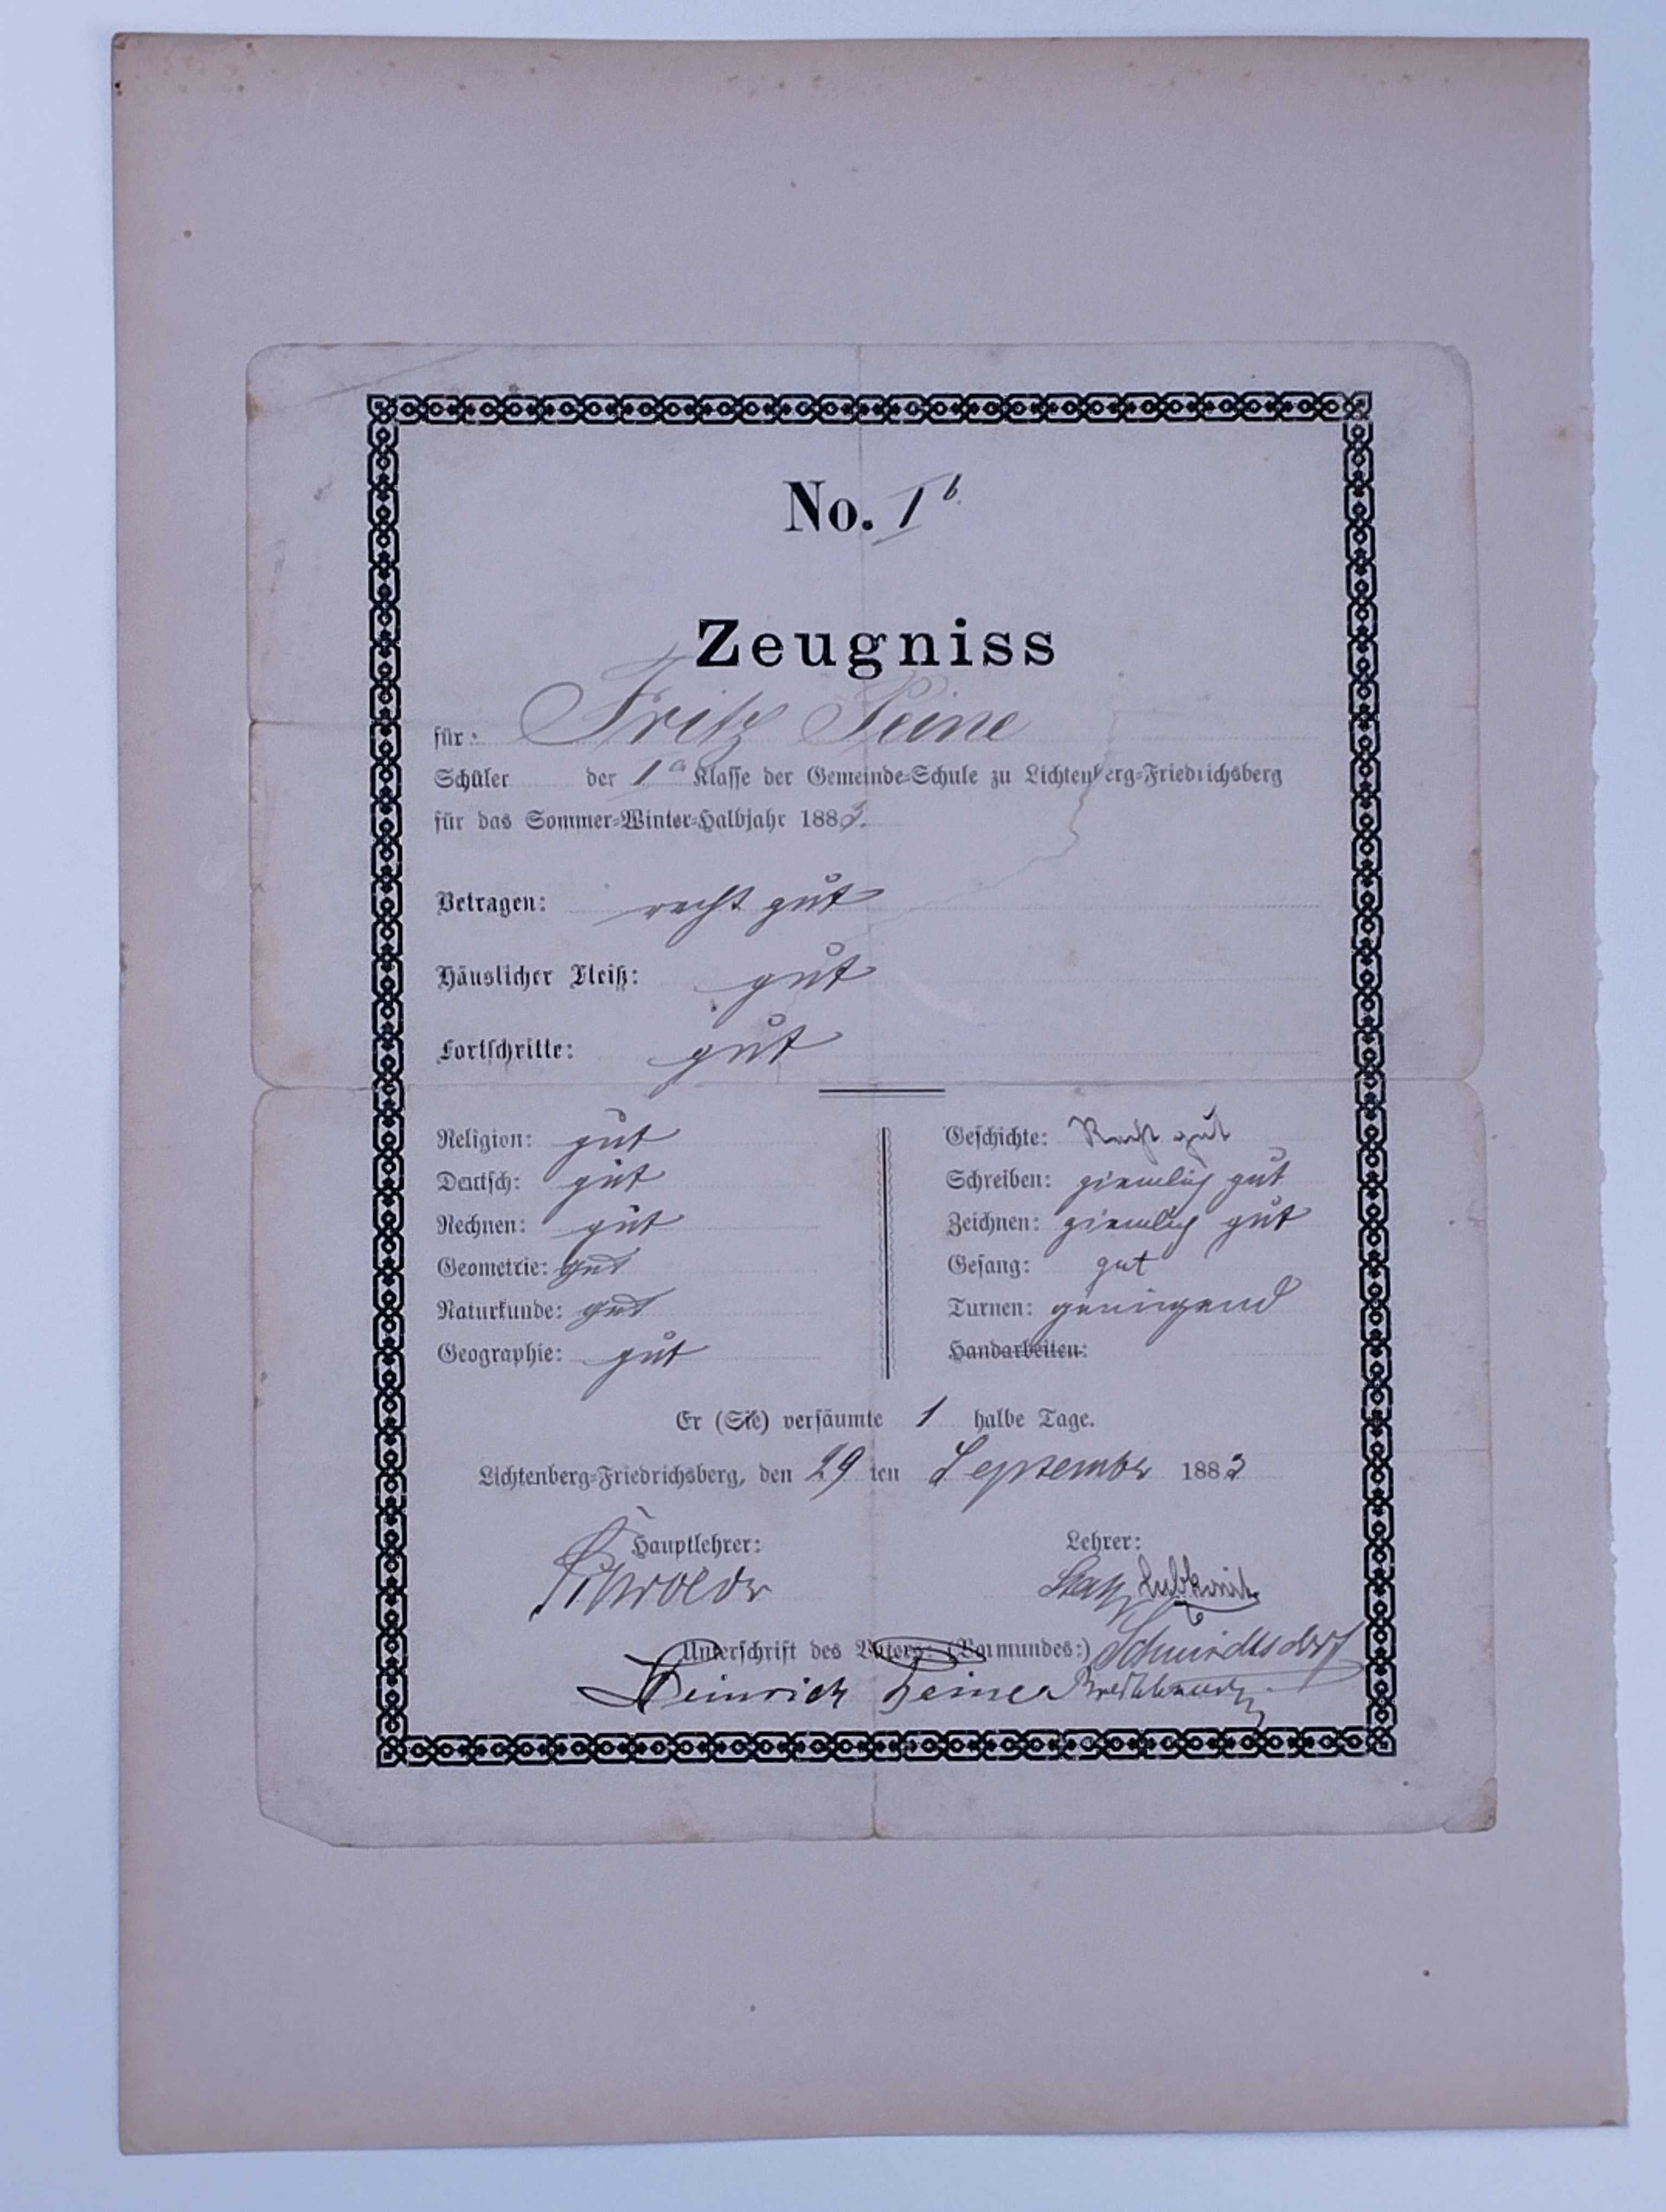 No. I b.
Zeugniss
für: Fritz Peine
Schüler der 1a Klasse der Gemeinde-Schule zu Lichtenberg-Friedrichsberg
für das Sommer-Winter-Halbjahr 1883.
Betragen: recht gut
Häuslicher Fleiß: gut
Fortschritte: gut
Religion: gut
Deutsch: gut
Rechnen: gut
Geometrie: gut
Naturkunde: gut
Geographie: gut
Geschichte: Recht gut
Schreiben: ziemlich gut
Zeichnen: ziemlich gut
Gesang: gut
Turnen: genügend
Handarbeiten:
Er (Sie) versäumte 1 halbe Tage.
Lichtenberg-Friedrichsberg, den 29 ten September 1883
Hauptlehrer:
Lehrer:
Unterschrift des Vaters: (Vormundes:) Schmidtsdorf
Heinrich Peine